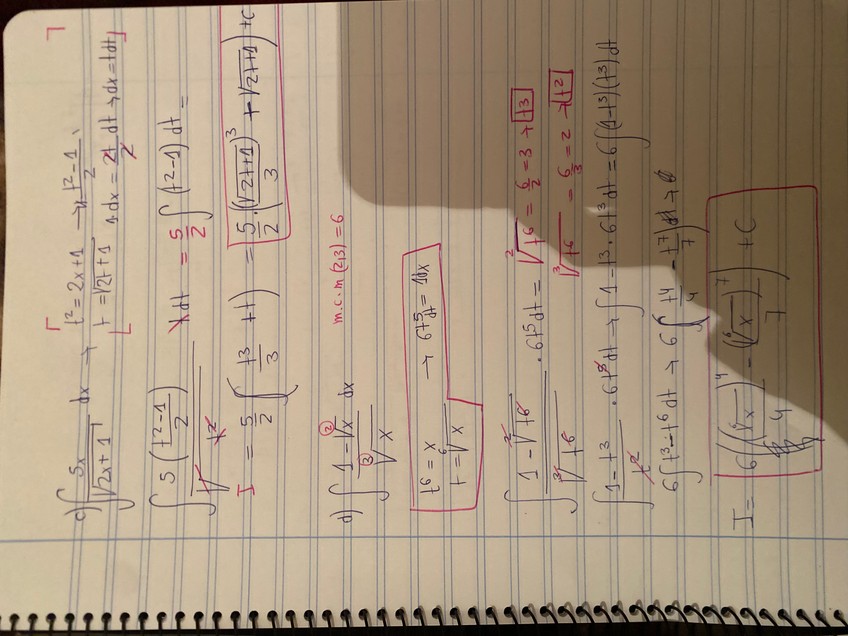 c) ∫ 5x/√(2x+1) dx → [ t² = 2x+1 → x = (t²-1)/2
t = √(2t+1) 1·dx = 2t/2 dt → dx = t dt ]
∫ 5((t²-1)/2)/√t² t dt = 5/2 ∫ (t²-1) dt =
I = 5/2 (t³/3 + t) = 5/2 · ((√(2t+1))³/3 + √(2t+1)) + C
d) ∫ (1-√x)/∛x dx m.c.m (2,3) = 6
t⁶ = x → 6t⁵ dt = 1dx
t = ⁶√x
∫ (1-√t⁶)/∛t⁶ · 6t⁵ dt = ²√t⁶ = 6/2 = 3 → t³
³√t⁶ = 6/3 = 2 → t²
∫ (1-t³)/t² · 6t⁵ dt → ∫ 1-t³ · 6t³ dt = 6∫(1-t³)(t³) dt
6∫ t³-t⁶ dt → 6 (t⁴/4 - t⁷/7) dt →
I = 6((⁶√x)⁴/4 - (⁶√x)⁷/7) + C